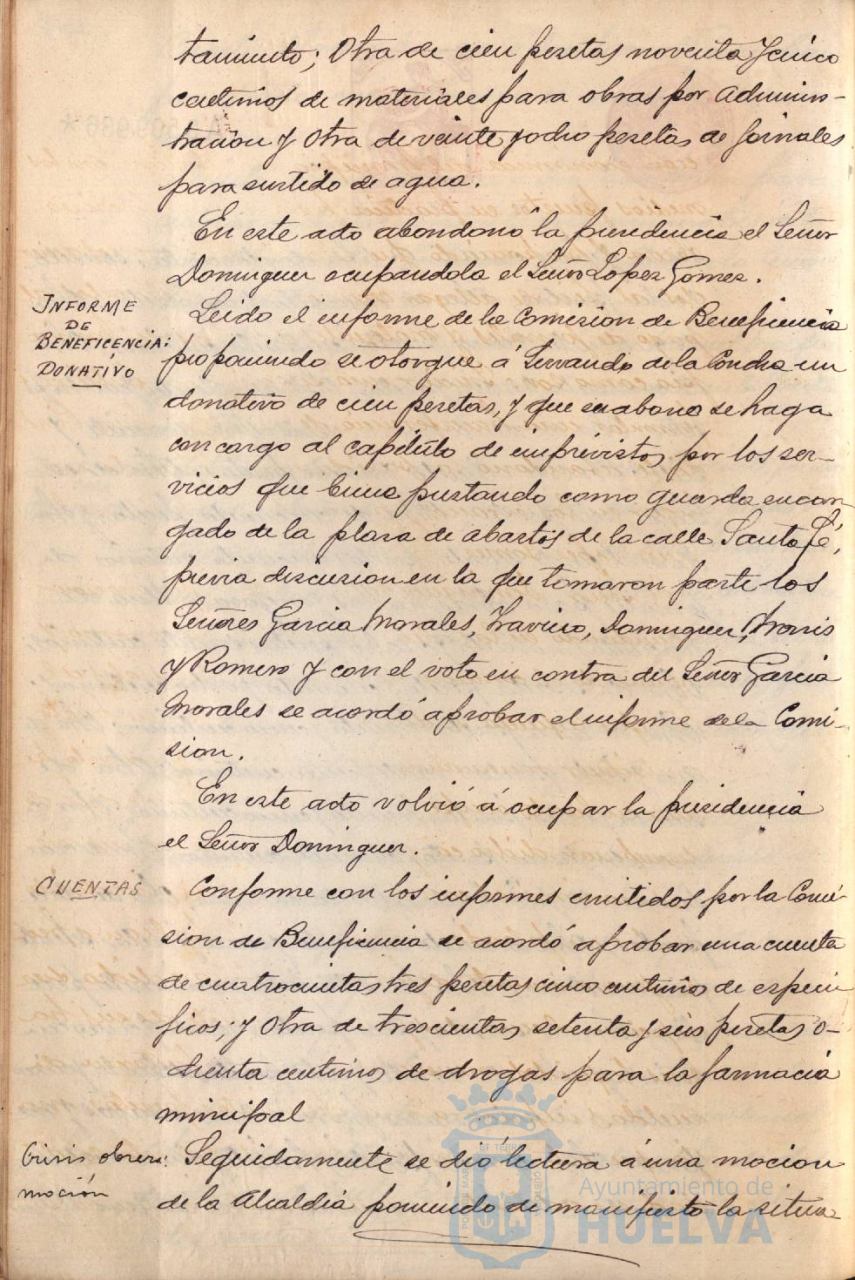 tamiento; Otra de cien pesetas noventa y cinco
centimos de materiales para obras por Adminis-
tracion y Otra de veinte y ocho pesetas de jornales
para surtido de agua.
En este acto abandonó la presidencia el Señor
Dominguez ocupandola el Señor Lopez Gomez.
INFORME
DE
BENEFICENCIA:
DONATÍVO
Leido el informe de la Comision de Beneficencia
proponiendo se otorgue á Servando de la Concha un
donativo de cien pesetas, y que su abono se haga
con cargo al capitulo de imprevistos, por los ser-
vicios que biene prestando como guarda encar
gado de la plaza de abastos de la calle Santa Fé,
previa discusion en la que tomaron parte los
Señores Garcia Morales, Traviero, Dominguez,
y Romero y con el voto en contra del Señor Garcia
Morales se acordó aprobar el informe de la Comi-
sion.
En este acto volvió á ocupar la presidencia
el Señor Dominguez.
CUENTAS
Conforme con los informes emitidos por la Comi-
sion de Beneficencia se acordó aprobar una cuenta
de cuatrocientas tres pesetas cinco centimos de especi-
ficos; y Otra de trescientas setenta y seis pesetas o-
chenta centimos de drogas para la farmacia
municipal
Crisis obrera:
moción
Seguidamente se dió lectura á una mocion
de la Alcaldia poniendo de manifiesto la situa-
Ayuntamiento de
HUELVA